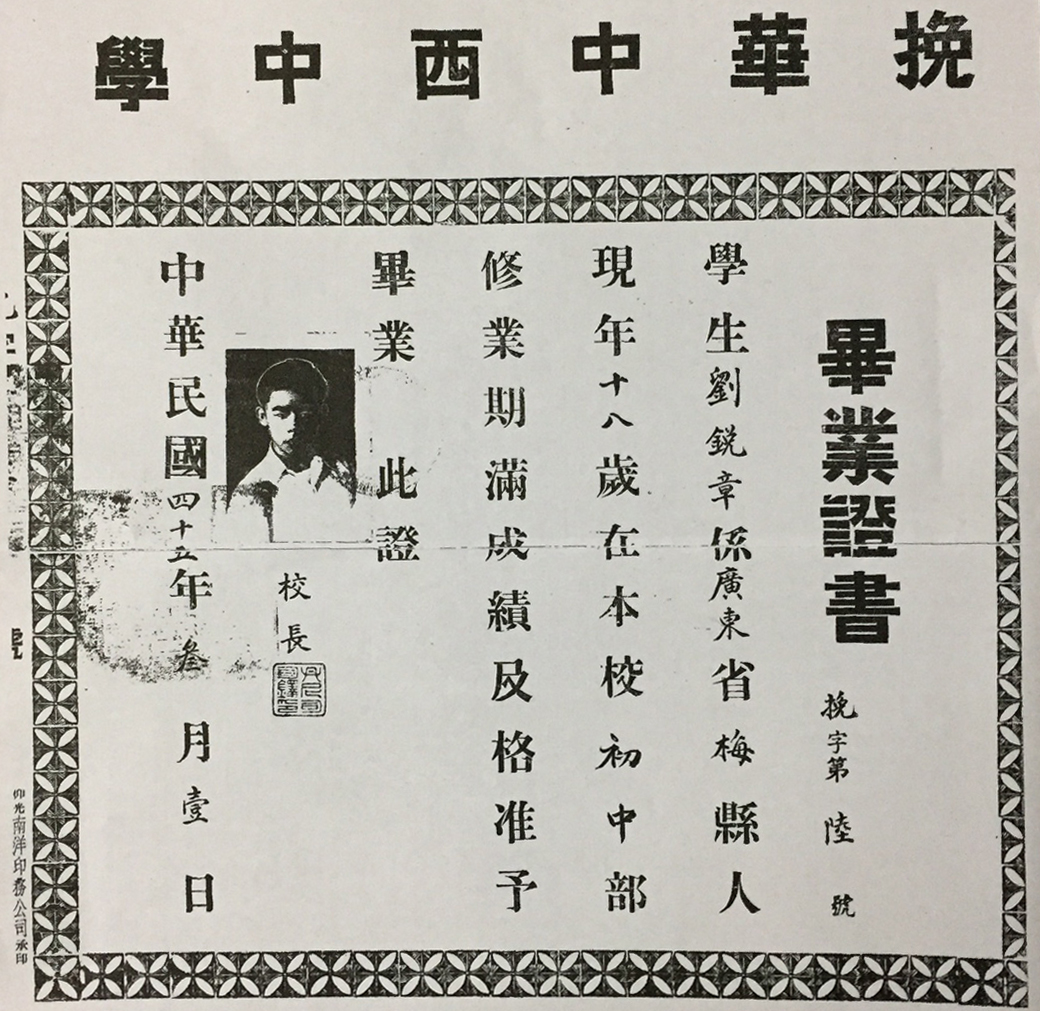 挽華中西中學
畢業證書
挽字第陸號
學生劉銳章係廣東省梅縣人
現年十八歲在本校初中部
修業期滿成績及格准予
畢業此證
校長
中華民國四十五年叁月壹日
仰光南洋印務公司承印